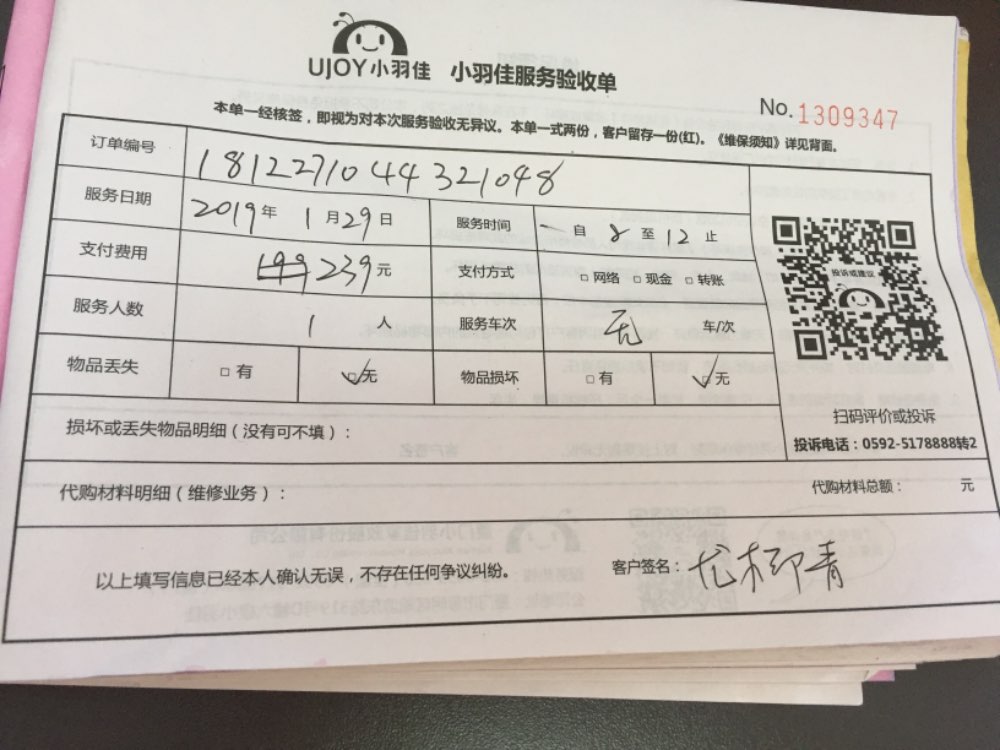 UJOY小羽佳 小羽佳服务验收单
No. 1309347
本单一经核签，即视为对本次服务验收无异议。本单一式两份，客户留存一份(红)。《维保须知》详见背面。
订单编号 1812271044321048
服务日期 2019年 1月29日 服务时间 自 8 至 12 止
支付费用 199 239元 支付方式 □网络 □现金 □转账
服务人数 1 人 服务车次 无 车/次
物品丢失 □有 ☑无 物品损坏 □有 ☑无
投诉或建议
扫码评价或投诉
投诉电话：0592-5178888转2
损坏或丢失物品明细（没有可不填）：
代购材料明细（维修业务）： 代购材料总额： 元
以上填写信息已经本人确认无误，不存在任何争议纠纷。 客户签名：尤柳青